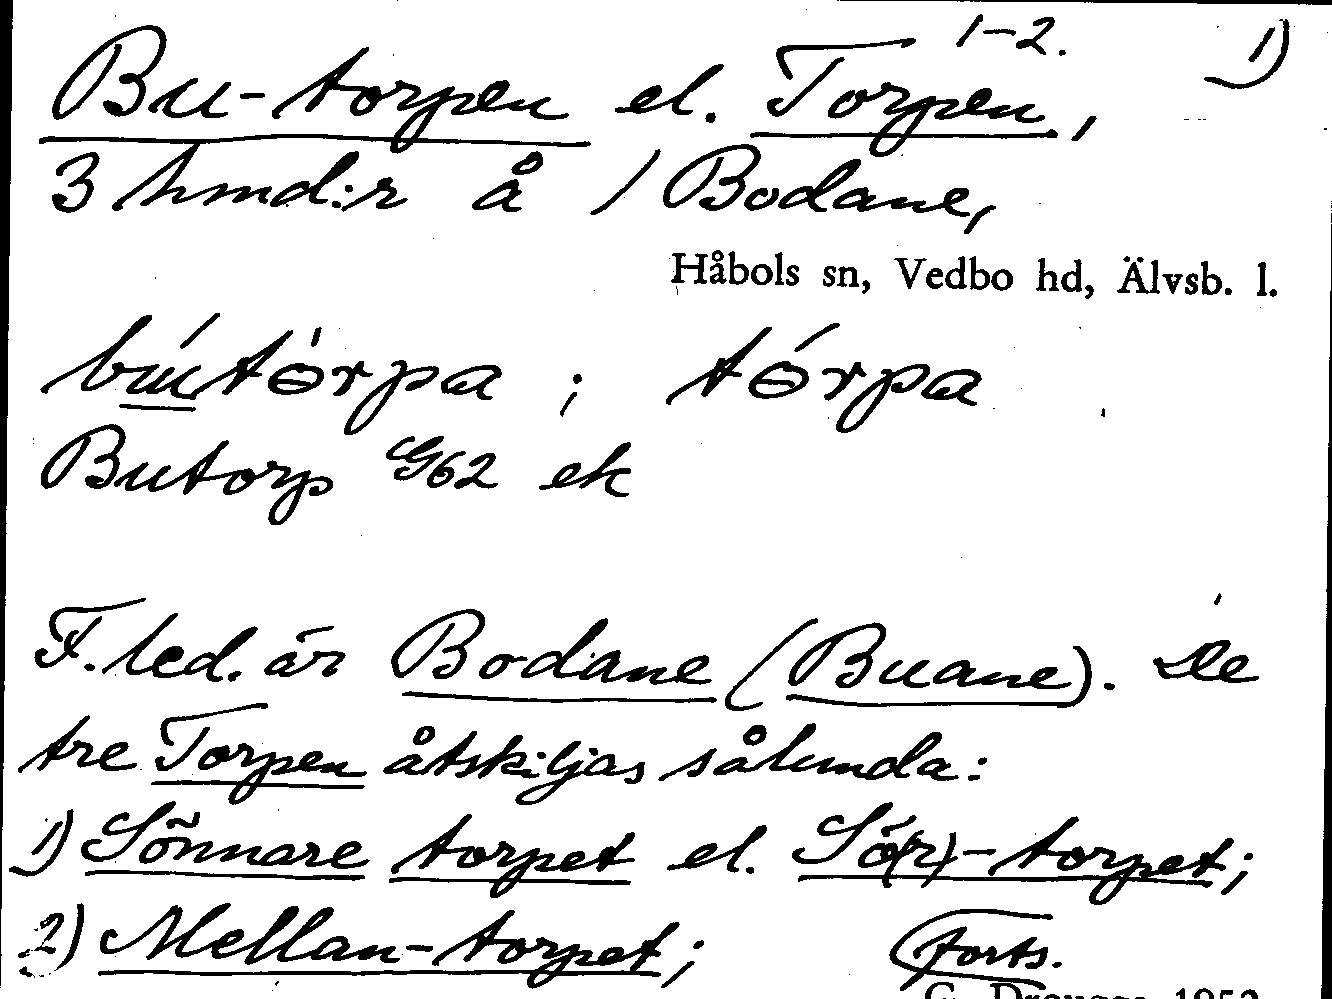 1-2. 1)
Bu-torpen el. Torpen,
3 hmd:r å / Bodane,
Håbols sn, Vedbo hd, Älvsb. l.
bútɵ̀rpa ; tɵ́rpa
Butorp G62 ek
F. led. är Bodane (Buane). De
tre Torpen åtskiljas sålunda:
1) Sönnare torpet el. Sö(r)-torpet;
2) Mellan-torpet; (forts.
1953